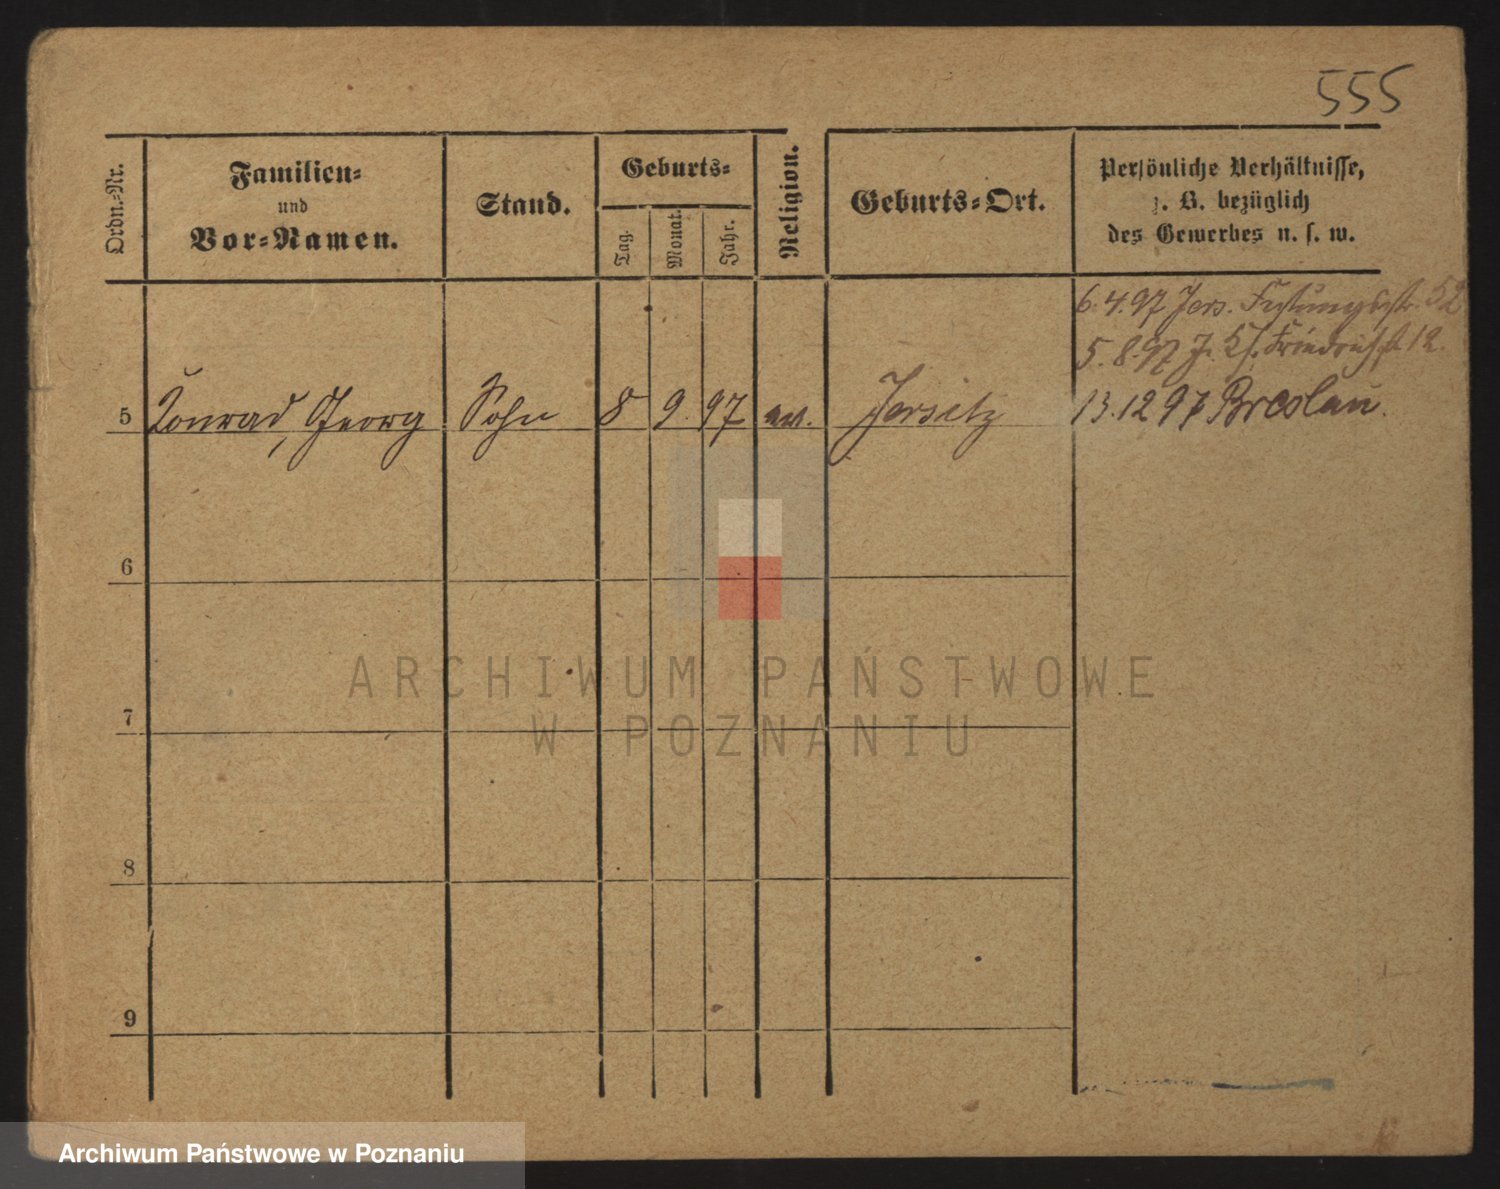 555
Ordn.-Nr.
Familien-
und
Vor-Namen.
Stand.
Geburts-
Tag.
Monat.
Jahr.
Religion.
Geburts-Ort.
Persönliche Verhältnisse,
z. B. bezüglich
des Gewerbes u. s. w.
6.4.97 Jers. Festungsstr. 52
5.8.97 J. Friedrichstr. 12.
5 Konrad, Georg Sohn 8 9. 97 ev. Jersitz 13.12 97 Breslau.
6
ARCHIWUM PAŃSTWOWE
W POZNANIU
7
8
9
Archiwum Państwowe w Poznaniu